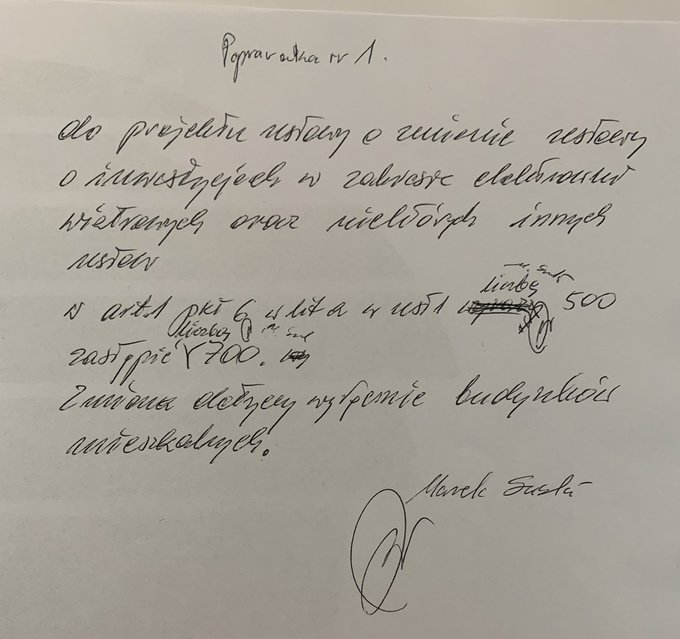 Poprawka nr 1.
do projektu ustawy o zmianie ustawy
o inwestycjach w zakresie elektrowni
wiatrowych oraz niektórych innych
ustaw
w art. 1 pkt 6 w lit a w ust 1 liczbę 500
zastąpić liczbą 700.
Zmiana dotyczy wyłącznie budynków
mieszkalnych.
Marek Suski